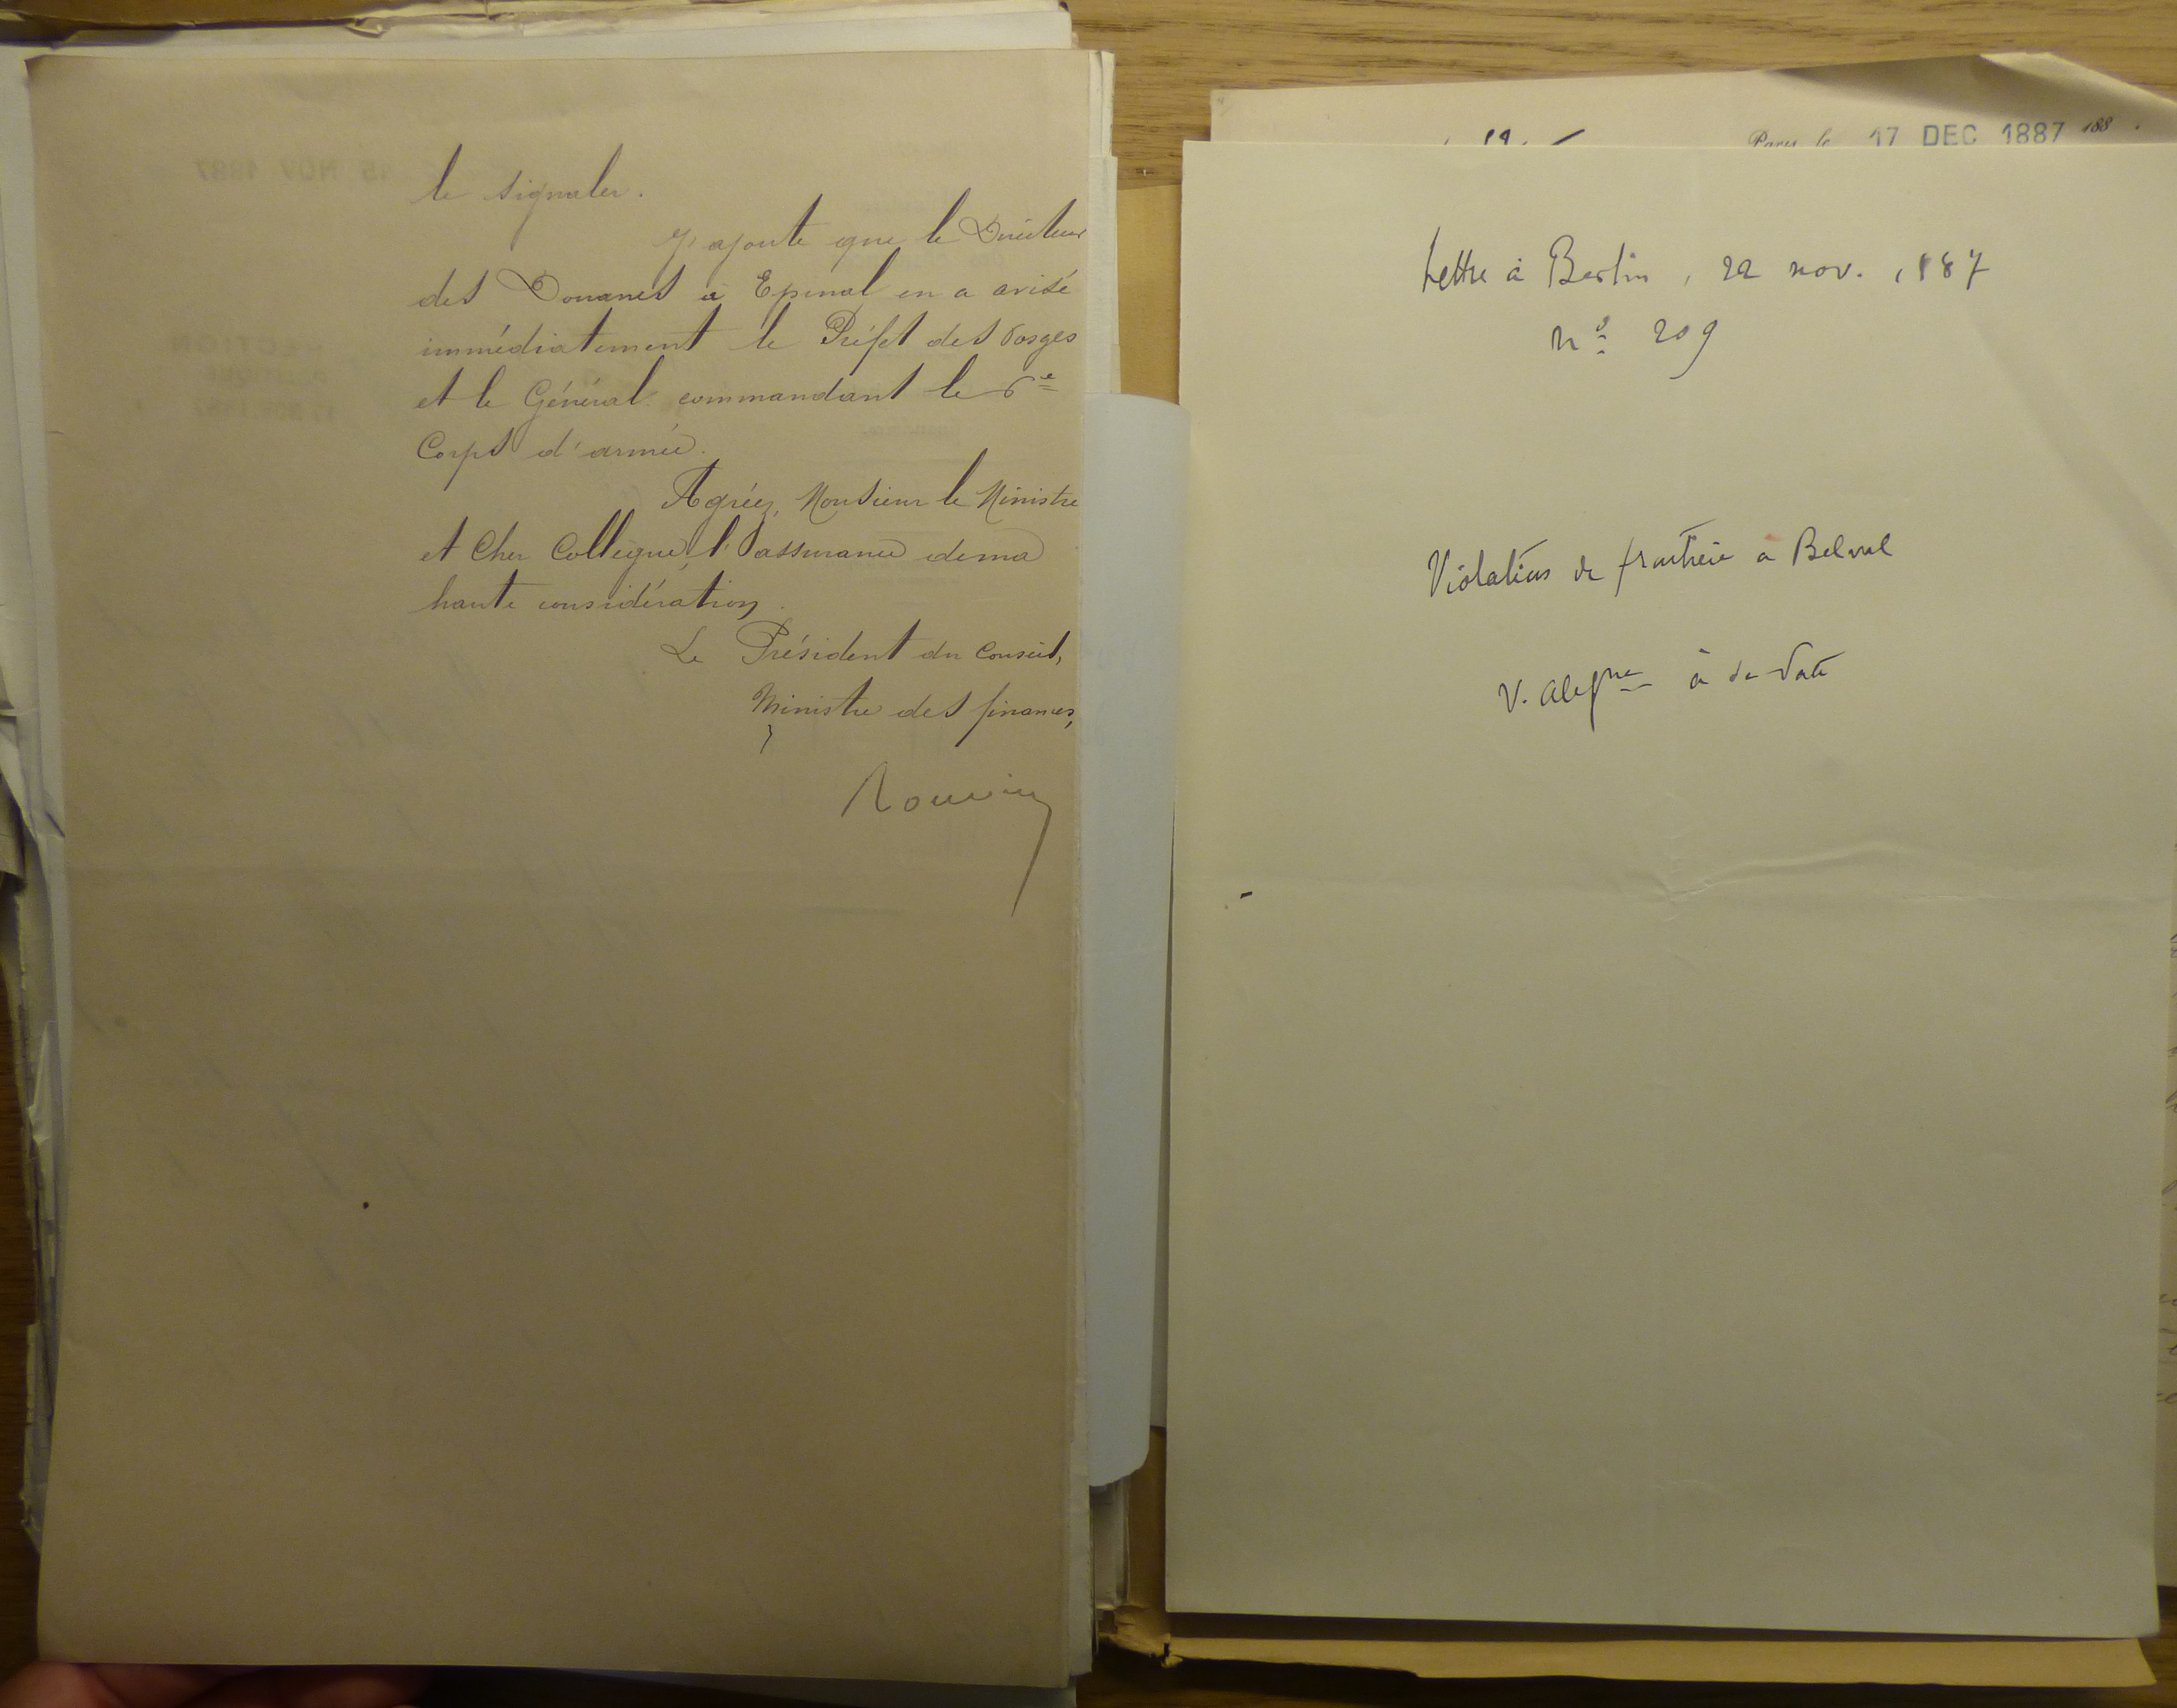 le signaler.
J'ajoute que le Directeur
des Douanes à Epinal en a avisé
immédiatement le Préfet des Vosges
et le Général commandant le 6e
Corps d'armée.
Agréez, Monsieur le Ministre
et Cher Collègue, l'assurance de ma
haute considération.
Le Président du Conseil,
Ministre des finances,
Rouvier
Paris, le 17 DEC 1887 188 .
Lettre à Berlin, 22 nov. 1887
No 209
Violation de frontière à Belval
V. à sa date